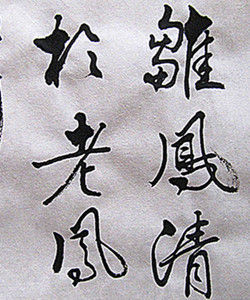 雛鳳清
於老鳳